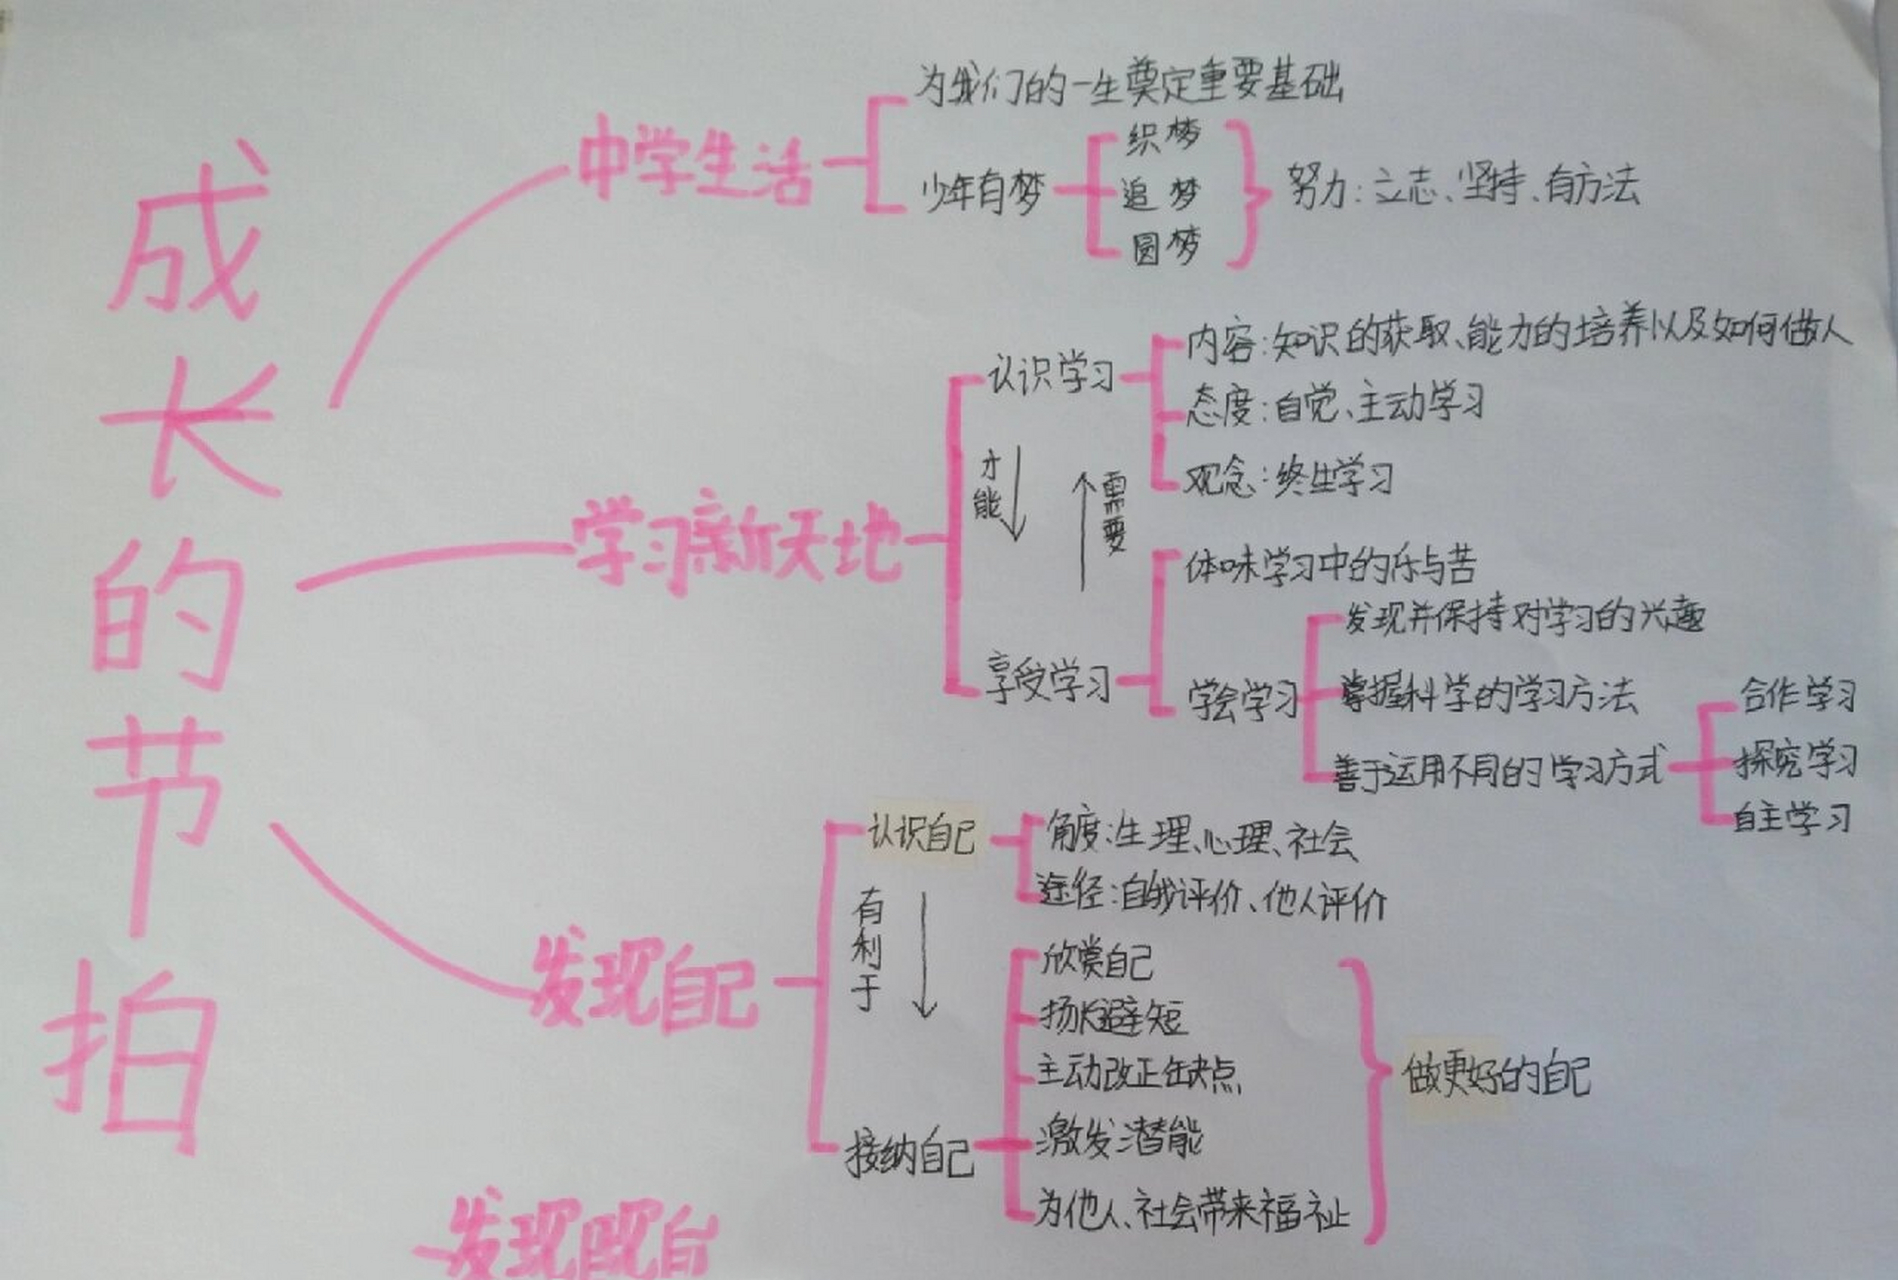 成长的节拍
中学生活
为我们的一生奠定重要基础
少年有梦
织梦
追梦
圆梦
努力：立志、坚持、有方法
学习新天地
认识学习
内容：知识的获取、能力的培养以及如何做人
态度：自觉、主动学习
观念：终生学习
才能
需要
享受学习
体味学习中的乐与苦
学会学习
发现并保持对学习的兴趣
掌握科学的学习方法
善于运用不同的学习方式
合作学习
探究学习
自主学习
发现自己
认识自己
角度：生理、心理、社会
途径：自我评价、他人评价
有利于
接纳自己
欣赏自己
扬长避短
主动改正缺点
激发潜能
为他人、社会带来福祉
做更好的自己
发现